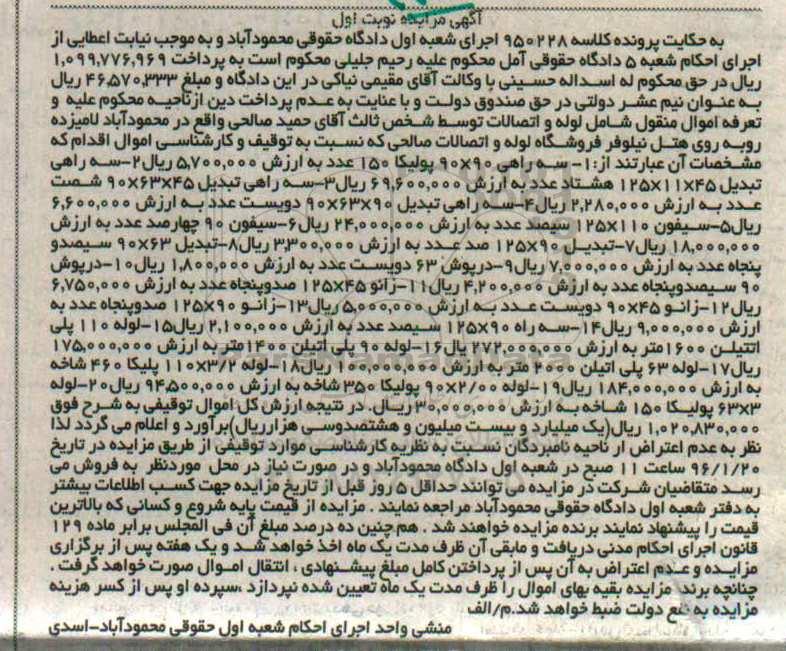 آگهی مزایده نوبت اول
به حکایت پرونده کلاسه ۹۵۰۲۲۸ اجرای شعبه اول دادگاه حقوقی محمودآباد و به موجب نیابت اعطایی از
اجرای احکام شعبه ۵ دادگاه حقوقی آمل محکوم علیه رحیم جلیلی محکوم است به پرداخت ۱,۰۹۹,۷۷۶,۹۶۹
ریال در حق محکوم له اسداله حسینی با وکالت آقای مقیمی نیاکی در این دادگاه و مبلغ ۴۶,۵۷۰,۳۳۳ ریال
به عنوان نیم عشر دولتی در حق صندوق دولت و با عنایت به عدم پرداخت دین ازناحیه محکوم علیه و
تعرفه اموال منقول شامل لوله و اتصالات توسط شخص ثالث آقای حمید صالحی واقع در محمودآباد لامیزده
روبه روی هتل نیلوفر فروشگاه لوله و اتصالات صالحی که نسبت به توقیف و کارشناسی اموال اقدام که
مشخصات آن عبارتند از:۱- سه راهی ۹۰×۹۰ پولیکا ۱۵۰ عدد به ارزش ۵,۷۰۰,۰۰۰ ریال۲-سه راهی
تبدیل ۴۵×۱۱×۱۲۵ هشتاد عدد به ارزش ۶۹,۶۰۰,۰۰۰ ریال۳-سه راهی تبدیل ۴۵×۶۳×۹۰ شصت
عدد به ارزش ۲,۲۸۰,۰۰۰ ریال۴-سه راهی تبدیل ۹۰×۶۳×۹۰ دویست عدد به ارزش ۶,۶۰۰,۰۰۰
ریال۵-سیفون ۱۱۰×۱۲۵ سیصد عدد به ارزش ۲۴,۰۰۰,۰۰۰ ریال۶-سیفون ۹۰ چهارصد عدد به ارزش
۱۸,۰۰۰,۰۰۰ ریال۷-تبدیل ۹۰×۱۲۵ صد عدد به ارزش ۳,۳۰۰,۰۰۰ ریال۸-تبدیل ۶۳×۹۰ سیصدو
پنجاه عدد به ارزش ۷,۰۰۰,۰۰۰ ریال۹-درپوش ۶۳ دویست عدد به ارزش ۱,۸۰۰,۰۰۰ ریال۱۰-درپوش
۹۰ سیصدوپنجاه عدد به ارزش ۴,۲۰۰,۰۰۰ ریال۱۱-زانو ۴۵×۱۲۵ صدوپنجاه عدد به ارزش ۶,۷۵۰,۰۰۰
ریال۱۲-زانو ۴۵×۹۰ دویست عدد به ارزش ۵,۰۰۰,۰۰۰ ریال۱۳-زانو ۹۰×۱۲۵ صدوپنجاه عدد به
ارزش ۹,۰۰۰,۰۰۰ ریال۱۴-سه راه ۹۰×۱۲۵ سیصد عدد به ارزش ۲,۱۰۰,۰۰۰ ریال۱۵-لوله ۱۱۰ پلی
اتتیلن ۱۶۰۰متر به ارزش ۲۷۲,۰۰۰,۰۰۰ یال۱۶-لوله ۹۰ پلی اتیلن ۱۴۰۰متر به ارزش ۱۷۵,۰۰۰,۰۰۰
ریال۱۷-لوله ۶۳ پلی اتیلن ۲۰۰۰ متر به ارزش ۱۰۰,۰۰۰,۰۰۰ ریال۱۸-لوله ۳/۲×۱۱۰ پلیکا ۴۶۰ شاخه
به ارزش ۱۸۴,۰۰۰,۰۰۰ ریال۱۹-لوله ۲/۰۰×۹۰ پولیکا ۳۵۰ شاخه به ارزش ۹۴,۵۰۰,۰۰۰ ریال۲۰-لوله
۳×۶۳ پولیکا ۱۵۰ شاخه به ارزش ۳۰,۰۰۰,۰۰۰ ریال. در نتیجه ارزش کل اموال توقیفی به شرح فوق
۱,۰۲۰,۸۳۰,۰۰۰ ریال(یک میلیارد و بیست میلیون و هشتصدوسی هزارریال)برآورد و اعلام می گردد لذا
نظر به عدم اعتراض از ناحیه نامبردگان نسبت به نظریه کارشناسی موارد توقیفی از طریق مزایده در تاریخ
۹۶/۱/۲۰ ساعت ۱۱ صبح در شعبه اول دادگاه محمودآباد و در صورت نیاز در محل موردنظر به فروش می
رسد متقاضیان شرکت در مزایده می توانند حداقل ۵ روز قبل از تاریخ مزایده جهت کسب اطلاعات بیشتر
به دفتر شعبه اول دادگاه حقوقی محمودآباد مراجعه نمایند . مزایده از قیمت پایه شروع و کسانی که بالاترین
قیمت را پیشنهاد نمایند برنده مزایده خواهند شد . هم چنین ده درصد مبلغ آن فی المجلس برابر ماده ۱۲۹
قانون اجرای احکام مدنی دریافت و مابقی آن ظرف مدت یک ماه اخذ خواهد شد و یک هفته پس از برگزاری
مزایده و عدم اعتراض به آن پس از پرداختن کامل مبلغ پیشنهادی ، انتقال اموال صورت خواهد گرفت .
چنانچه برند مزایده بقیه بهای اموال را ظرف مدت یک ماه تعیین شده نپردازد ،سپرده او پس از کسر هزینه
مزایده به نفع دولت ضبط خواهد شد.م/الف
منشی واحد اجرای احکام شعبه اول حقوقی محمودآباد-اسدی